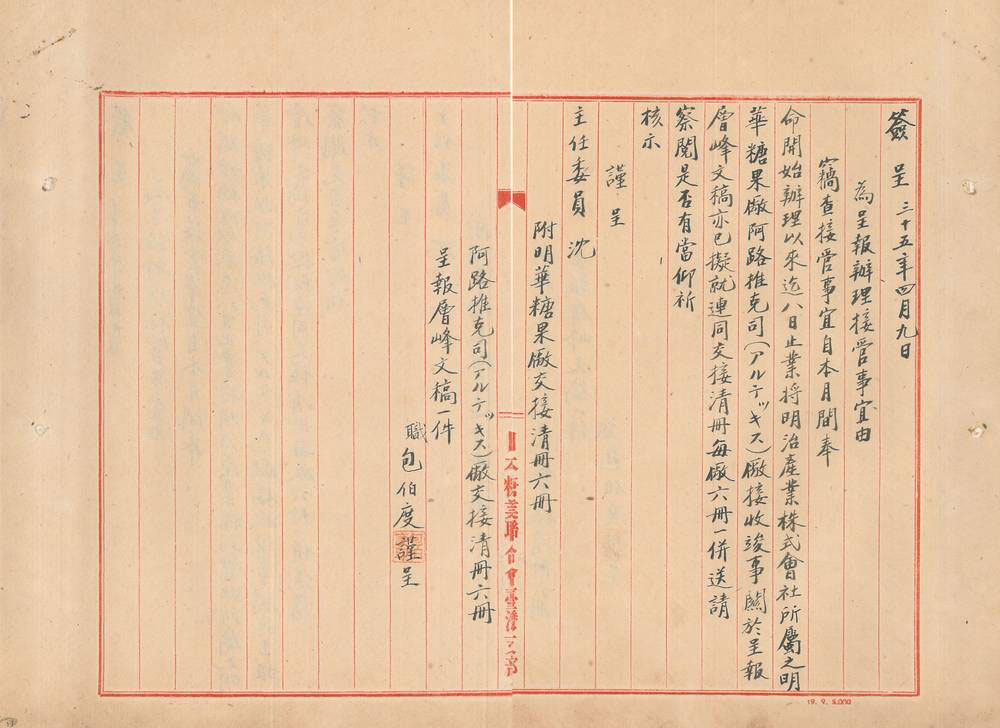 簽呈 三十五年四月九日
為呈報辦理接管事宜由
竊查接管事宜自本月間奉
命開始辦理以來迄八日止業將明治產業株式會社所屬之明
華糖果廠阿路推克司(アルテッキス)廠接收竣事關於呈報
層峰文稿亦已擬就連同交接清冊每廠六冊一併送請
察閱是否有當仰祈
核示
謹呈
主任委員 沈
附明華糖果廠交接清冊六冊
日本糖業聯合會臺灣支部
阿路推克司(アルテッキス)廠交接清冊六冊
呈報層峰文稿一件
職 包伯度 謹呈
19. 9. 5,000